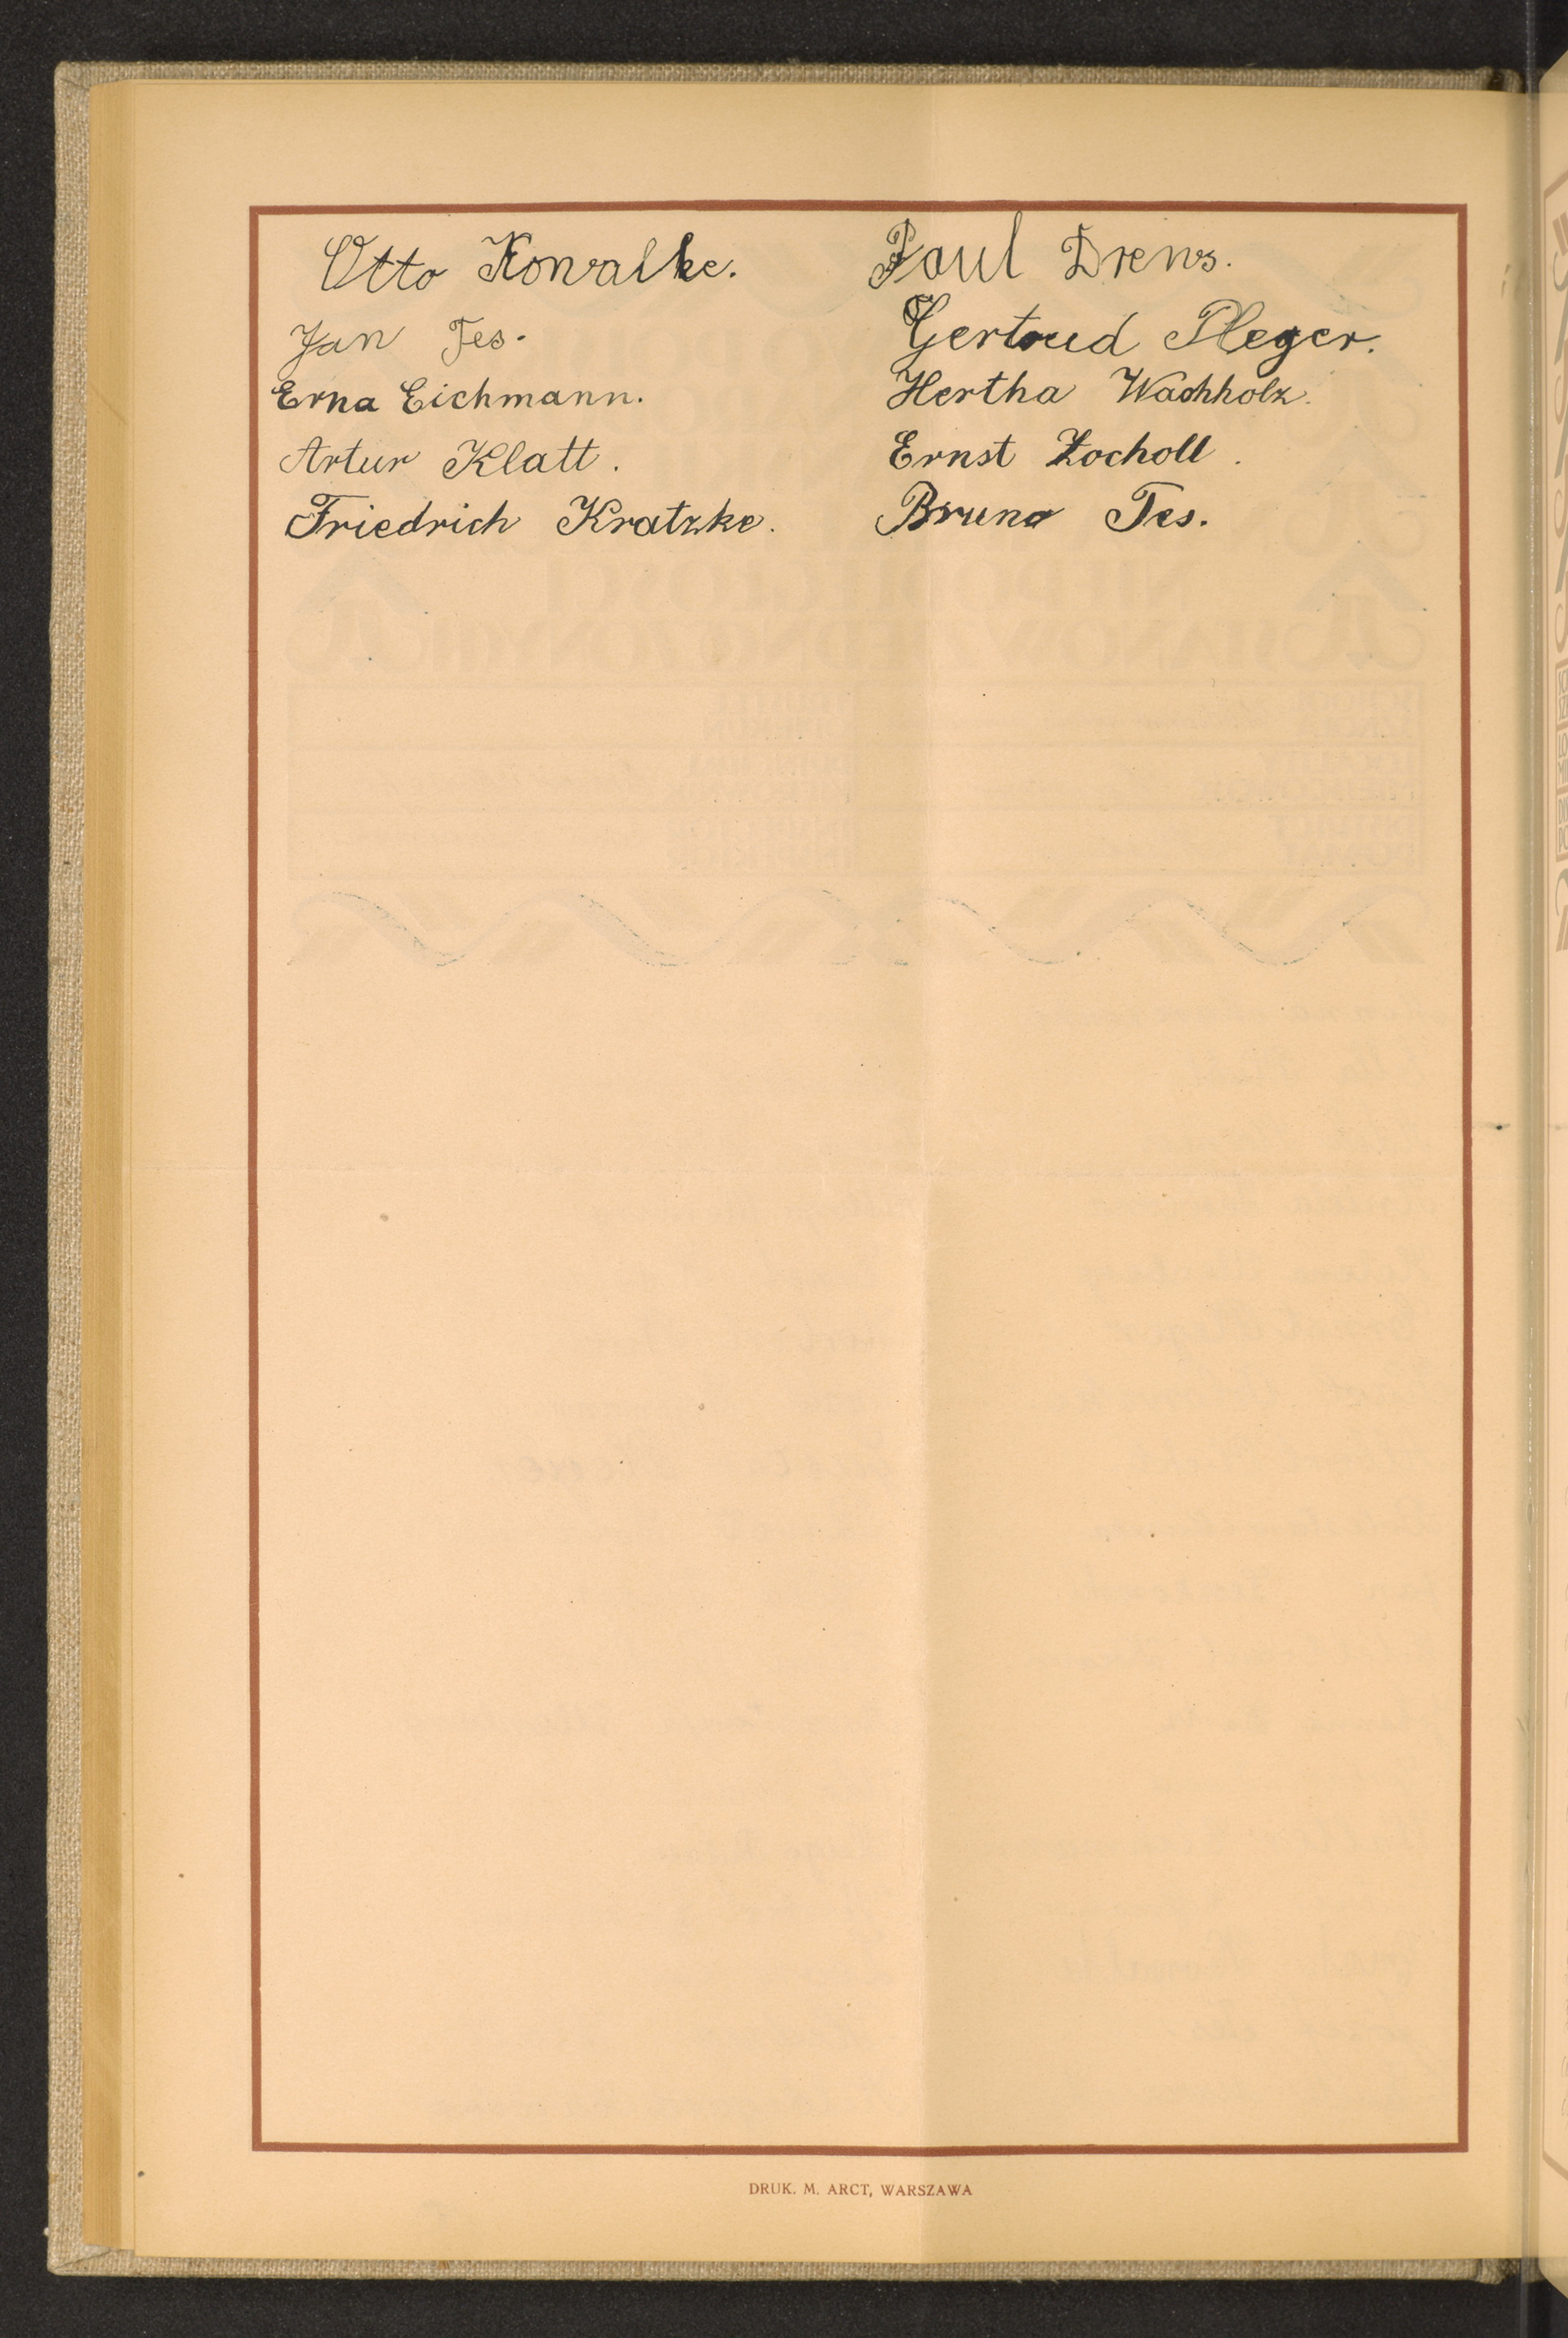 Otto Konvalke.
Jan Tes.
Erna Eichmann.
Artur Klatt.
Friedrich Kratzke.
Paul Drews.
Gertrud Pleger.
Hertha Wachholz.
Ernst Zocholl.
Bruno Tes.
DRUK. M. ARCT, WARSZAWA